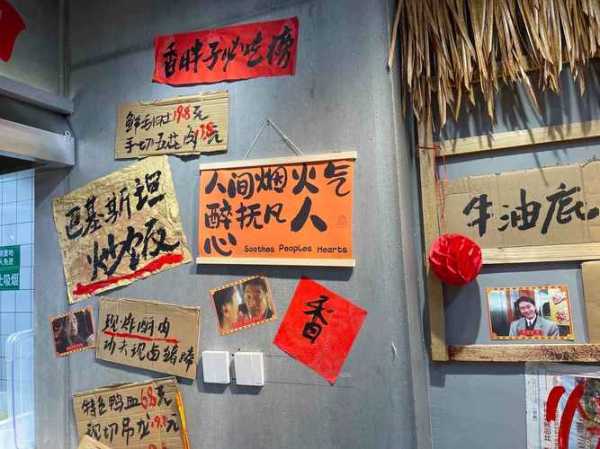 香胖子必吃榜
鲜毛肚19.8元
手切五花肉元
巴基斯坦
炒饭
人间烟火气
醉抚凡人
心 Soothes Peoples Hearts
牛油底
香
现炸酥肉
功夫现卤
特色鸭血6.8元
现切吊龙
止吸烟